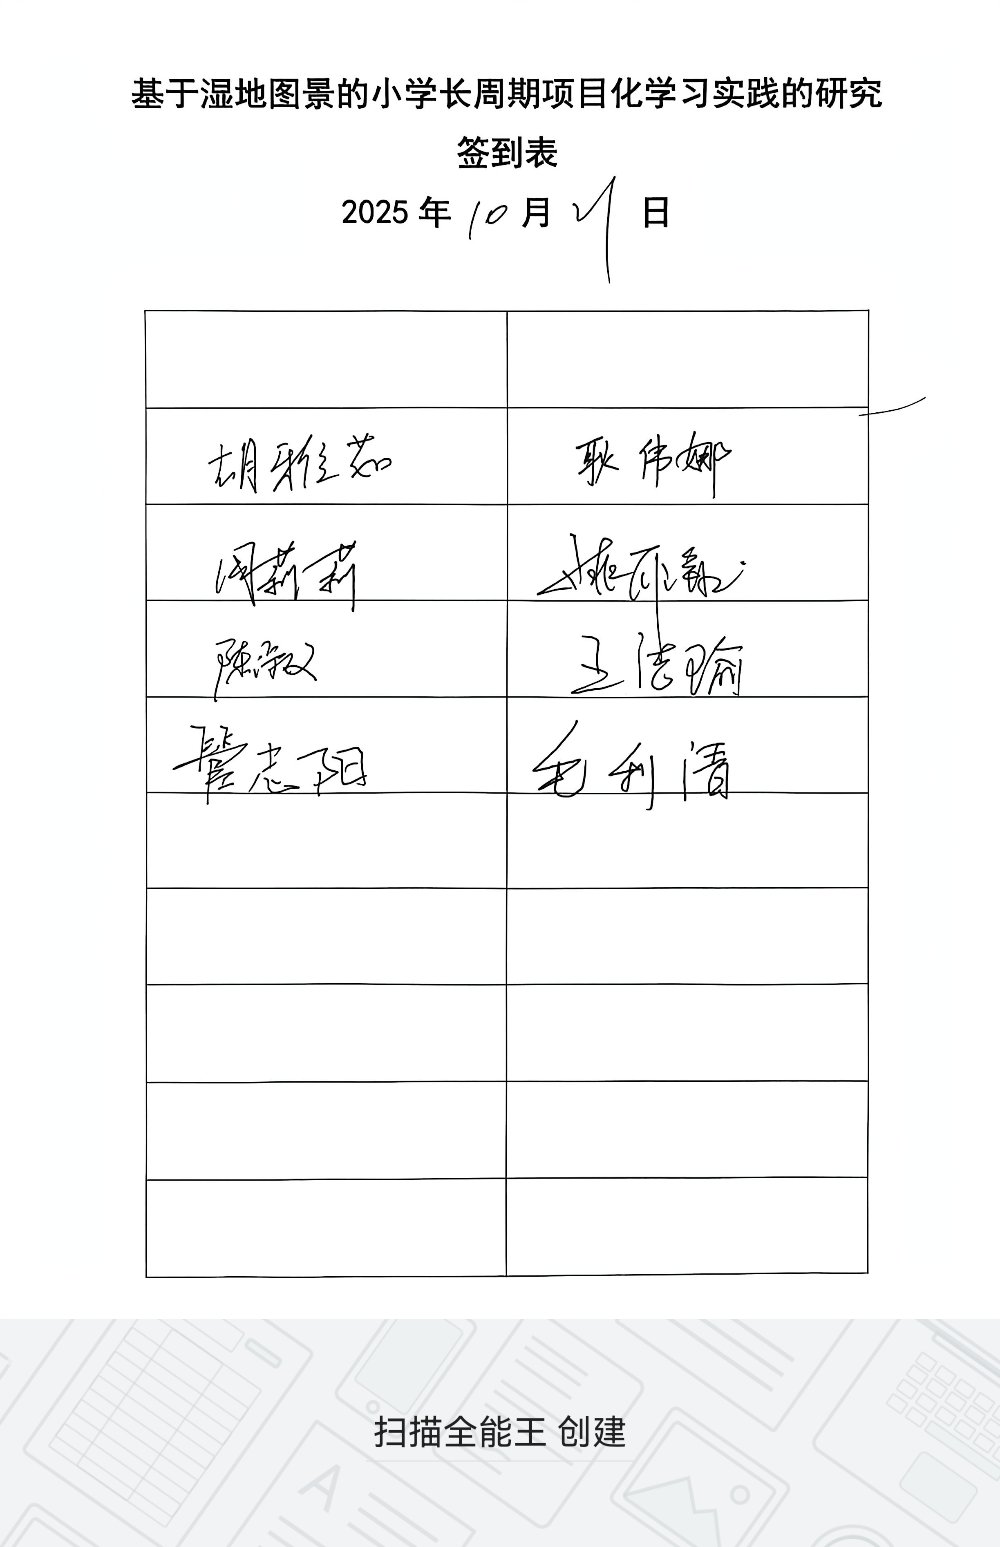 基于湿地图景的小学长周期项目化学习实践的研究
签到表
2025 年 10 月 21 日
胡雅茹 耿伟娜
周莉莉
陈淑 王洁瑜
管志阳 毛利清
扫描全能王 创建